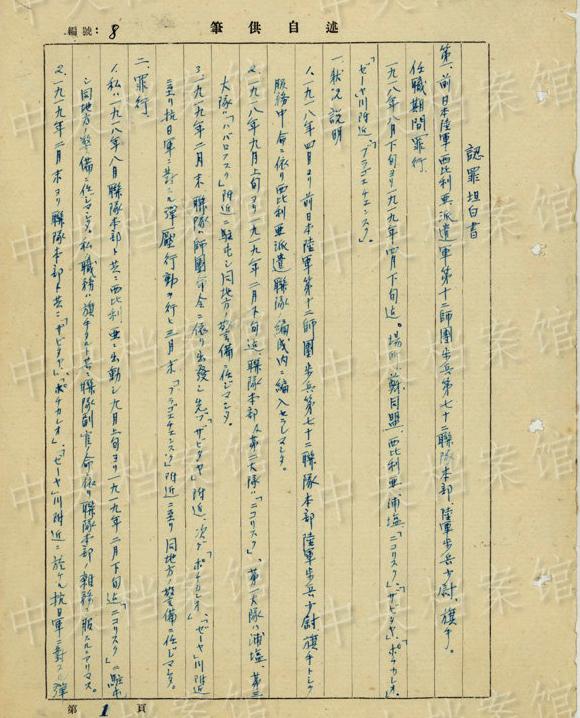 述自供筆
編號：8
認罪坦白書
第一、前日本陸軍西比利亜派遣軍第十二師團歩兵第七十二聯隊本部、陸軍歩兵少尉、旗手。
任職期間罪行、
一九一八年八月下旬ヨリ一九一九年四月下旬迄。場所ハ蘇同盟、西比利亜、浦塩、「ニコリスク」、「ザビタヤ」、「ポチカレオ」、
「ゼーヤ」川附近、「ブラゴエチエンスク」。
一、状況説明
1、一九一八年四月ヨリ前日本陸軍第十二師團歩兵第七十二聯隊本部陸軍歩兵少尉旗手トシテ
服務中、命ニ依リ西比利亜派遣聯隊ノ編成内ニ編入セラレマシタ。
2、一九一八年九月上旬ヨリ一九一九年二月下旬迄、聯隊本部及第二大隊ハ「ニコリスク」、第一大隊ハ浦塩、第三
大隊ハ「ハバロフスク」附近ニ駐屯シ同地方ノ警備ニ任ジマシタ。
3、一九一九年二月末聯隊ハ師團命令ニ依リ出發シ先ヅ「ザビタヤ」附近、次デ「ポチカレオ」、「ゼーヤ」川附近
ニ至リ抗日軍ニ對スル弾圧行動ヲ行ヒ三月末「ブラゴエチエンスク」附近ニ至リ同地方ノ警備ニ任ジマシタ。
二、罪行
1、私ハ一九一八年八月聯隊本部ト共ニ西比利亜ニ出動シ九月上旬ヨリ一九一九年二月下旬迄「ニコリスク」ニ駐屯
シ同地方ノ警備ニ任ジマシタ。私ノ職務ハ旗手タルト共ニ聯隊副官ノ命ニ依リ聯隊本部ノ雑務ニ服シタノデアリマス。
2、一九一九年二月末ヨリ聯隊本部ト共ニ「ザビタヤ」、「ポチカレオ」、「ゼーヤ」川附近ニ於ケル抗日軍ニ對スル弾
第1頁
中央档案馆